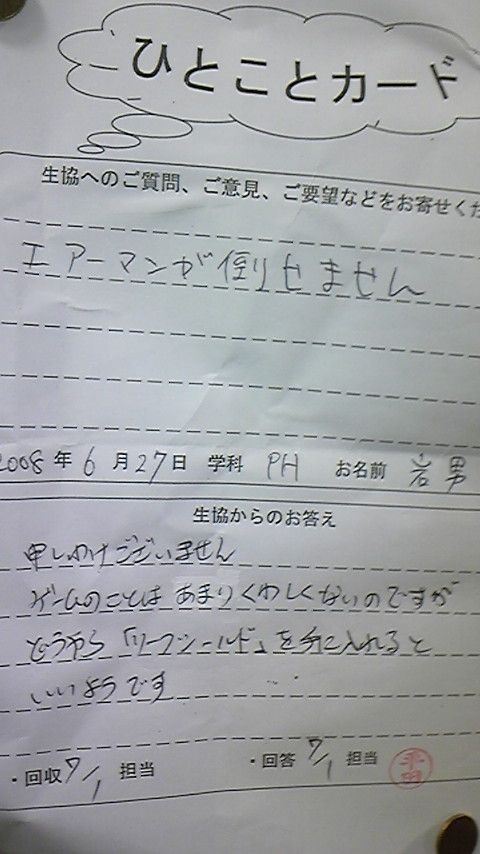 ひとことカード
生協へのご質問、ご意見、ご要望などをお寄せくだ
エアーマンが倒せません
2008年6月27日 学科 PH お名前 岩男
生協からのお答え
申しわけございません
ゲームのことはあまりくわしくないのですが
どうやら「リーフシールド」を手に入れると
いいようです
・回収7/1 担当 ・回答7/1 担当 平田